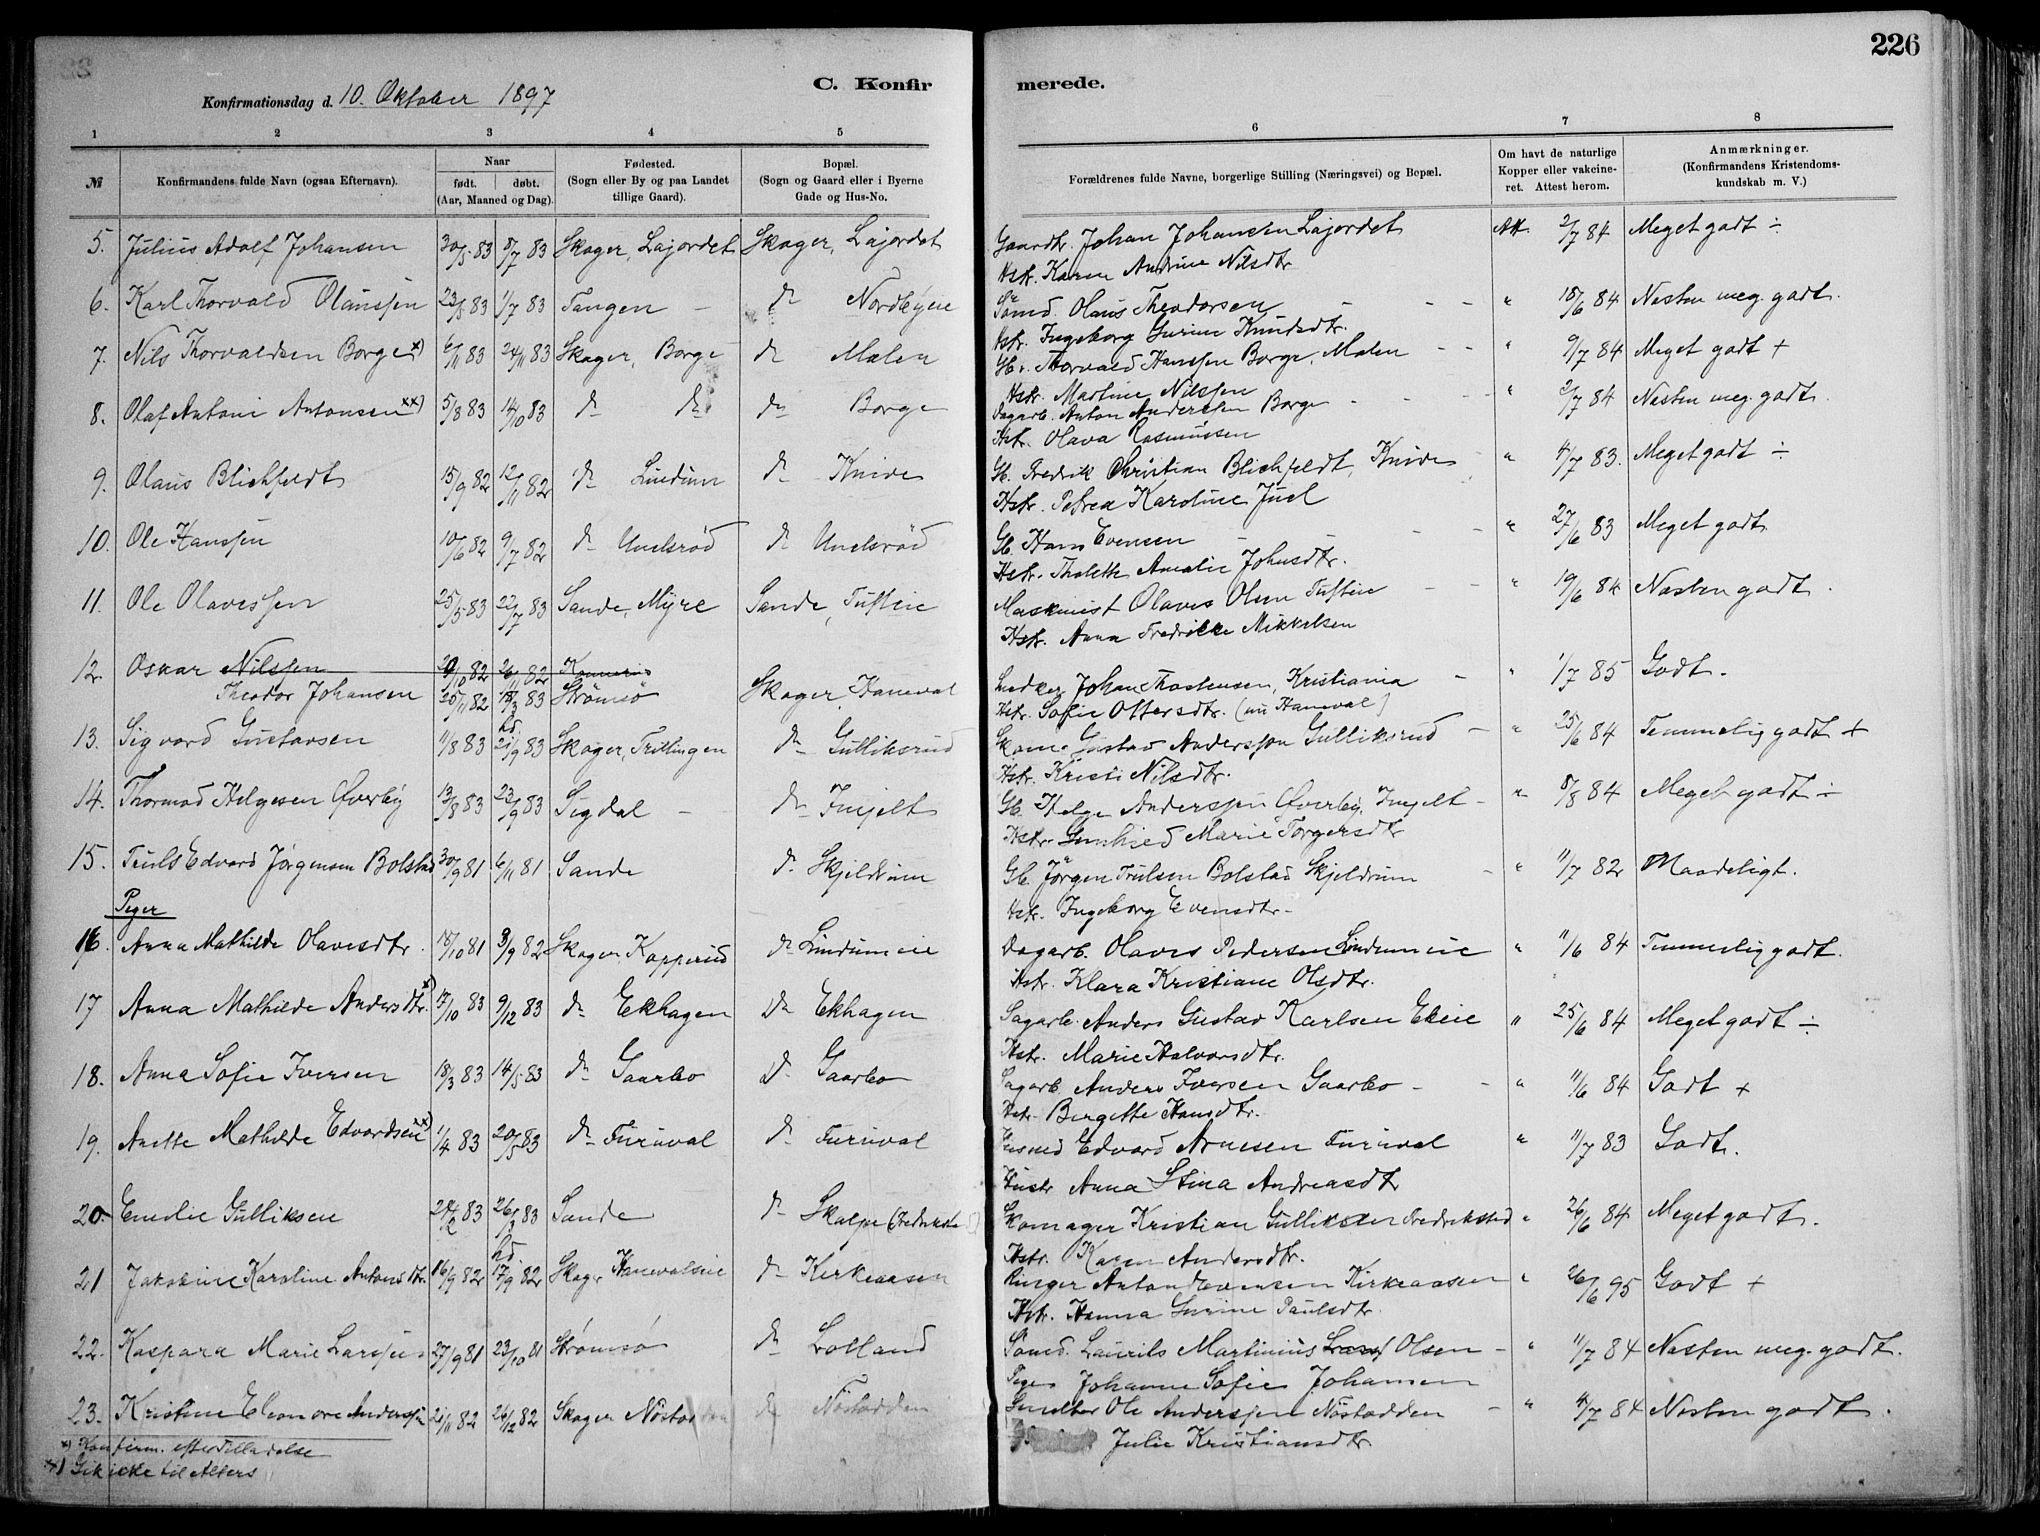 226
Konfirmationsdag d. 10. Oktober 1897
C. Konfir merede.
1 2 3 4 5 6 7 8
№ Konfirmandens fulde Navn (ogsaa Efternavn). Naar født. døbt. (Aar, Maaned og Dag). Fødested. (Sogn eller By og paa Landet tillige Gaard). Bopæl. (Sogn og Gaard eller i Byerne Gade og Hus-No. Forældrenes fulde Navne, borgerlige Stilling (Næringsvei) og Bopæl. Om havt de naturlige Kopper eller vakcineret. Attest herom. Anmærkninger. (Konfirmandens Kristendomskundskab m. V.)
5. Julius Adolf Johansen 30/5 83 8/7 83 Skoger, Lajordet Skoger, Lajordet Gaardbr. Johan Johansen Lajordet Att. 2/7 84 Meget godt ÷
Hstr. Karen Andrine Nilsdtr.
6. Karl Thorvald Olaussen 23/5 83 1/7 83 Tangen - do Nordbyeie Sömd. Olaus Theodorsen - - - " 18/6 84 Næsten meg. godt.
Hstr. Ingeborg Gurine Knudsdtr.
7. Nils Thorvaldsen Borge x) 6/11 83 24/11 83 Skoger, Borge do Malen Gb. Thorvald Hanssen Borge, Malen - - " 9/7 84 Meget godt +
Hstr. Martine Nilssen
8. Olaf Antoni Antonsen xx) 5/8 83 14/10 83 do do do Borge Dagarb. Anton Anderssen Borge - - - " 2/7 84 Næsten meg. godt.
Hstr. Olava Rasmussen
9. Olaus Blichfeldt 15/9 82 12/11 82 do Lindum do Knive Gb. Fredrik Christian Blichfeldt, Knive " 4/7 83. Meget godt ÷
Hstr. Petrea Karoline Juel
10. Ole Hanssen 10/6 82 9/7 82 do Unelsröd do Unelsröd Gb. Hans Evensen - - - " 27/6 83 Meget godt
Hstr. Thalette Amalie Johnsdtr.
11. Ole Olavessen 25/5 83 22/7 83 Sande, Myre Sande, Tufteie Maskinist Olaves Olsen Tufteie - - " 19/6 84 Næsten godt.
Hstr. Anna Fredrikke Mikkelsen
12. Oskar Nilssen 20/10 82 26/11 82
Theodor Johansen 25/11 82 18/3 83 Strømsø Skoger, Haneval Johan Thostensen, Kristiania - " 1/7 85 Godt.
Hstr. Sofie Ottersdtr. (nu Haneval)
13. Sigvard Gustavsen 11/8 83 hd. 21/9 83 Skoger, Trillingen do Gulliksrud Skom. Gustav Anderssen Gulliksrud - " 25/6 84 Temmelig godt +
Hstr. Kristi Nilsdtr.
14. Thormod Helgesen Øverby 13/8 83 23/9 83 Sigdal - do Imjelt Gb. Helge Anderssen Øverby, Imjelt - " 8/8 84 Meget godt ÷
Hstr. Gunhild Marie Torgersdtr
15. Truls Edvard Jörgensen Bolstad 30/9 81 6/11 81 Sande do Skjeldrum Gb. Jörgen Trulsen Bolstad Skjeldrum - " 11/7 82 Maadeligt.
Hstr. Ingeborg Evensdtr.
Piger
16. Anna Mathilde Olavesdtr. 18/10 81 3/9 82 Skoger, Kopperud do Lindumeie Dagarb. Olaves Pedersen Lindumeie " 11/6 84 Temmelig godt.
Hstr. Klara Kristiane Olsdtr.
17 Anna Mathilde Andersdtr. x) 17/10 83 9/12 83 do Ekhagen Do Ekhagen Sagarb. Anders Gustav Karlsen Ekeie " 25/6 84 Meget godt ÷
Hstr. Marie Halvorsdtr.
18. Anna Sofie Iversen 18/3 83 14/5 83 do Gaarbo Do Gaarbo Sagarb. Anders Iversen Gaarbo - - " 11/6 84 Godt +
Hstr. Bergette Hansdtr.
19. Anette Mathilde Edvardsen xx) 1/4 83 20/5 83 do Furuval do Furuval Husmd Edvard Arnesen Furuval " 11/7 83 Godt.
Hustr Anna Stina Andreasdtr
20. Emilie Gulliksen 24/2 83 26/3 83 Sande do Skalpe (Fredrikstad) Skomager Kristian Gulliksen Fredrikstad " 26/6 84 Meget godt.
Hstr. Karen Andersdtr.
21 Jakobine Karoline Antonsdtr. 16/9 82 hd. 17/9 82 Skoger Hanevalseie do Kirkeaasen Ringer Anton Evensen Kirkeaasen " 26/6 95 Godt +
Hstr. Hanna Gurine Paulsdtr.
22. Kaspara Marie Larssen 27/9 81 23/10 81 Strømsø do Lolland Sömd. Laurits Martinius Olsen - " 11/7 84 Næsten meg. godt.
Pige Johanne Sofie Johansen
23. Kristine Eleonore Anderssen 21/11 82 26/12 82 Skoger Nöstodden do Nöstodden Ole Anderssen Nöstodden - " 4/7 84 Næsten godt.
Julie Kristiansdtr.
x) Konfirm. efter Tilladelse
xx) Gik ikke til Alters